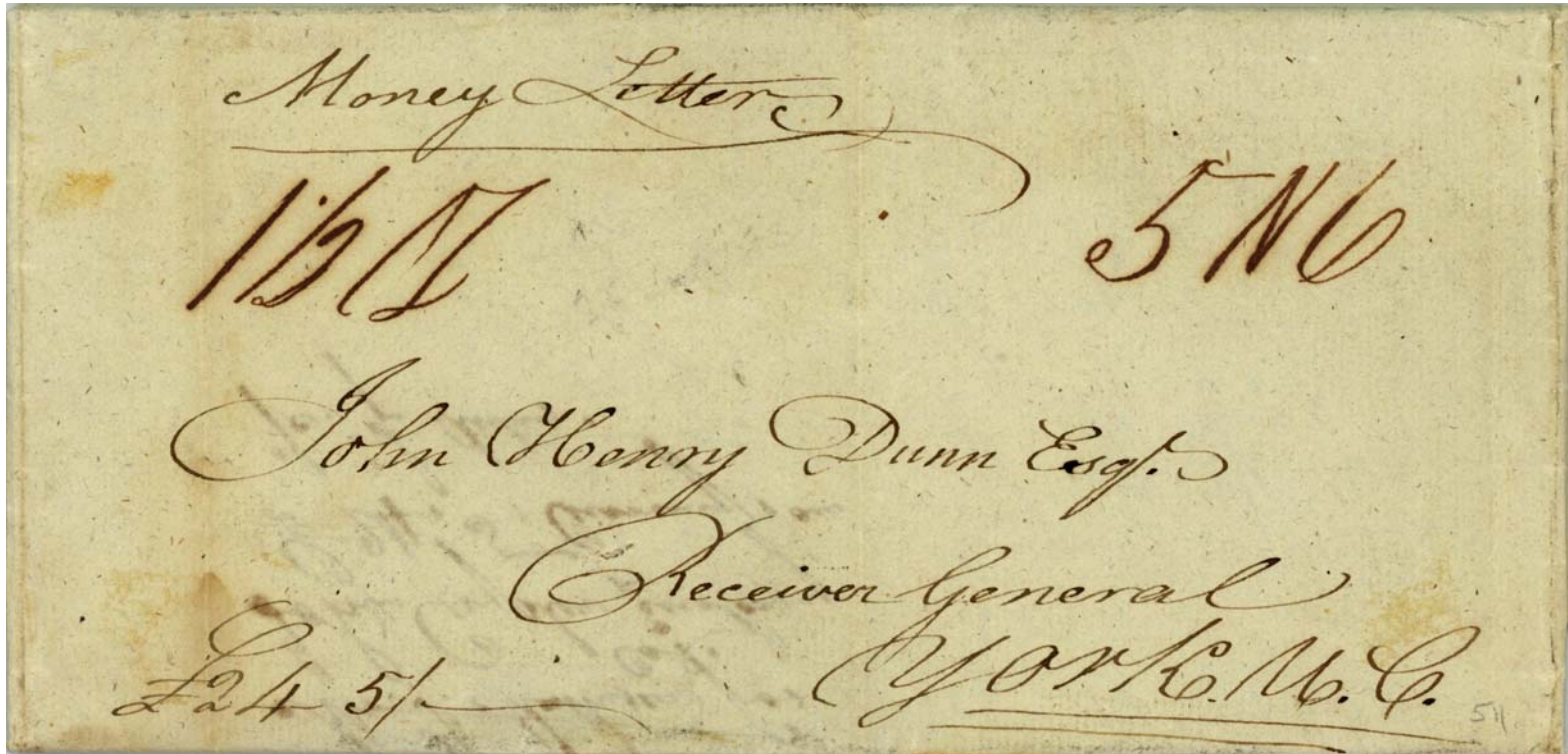 Money Letter
1½ N
5 N 6
John Henry Dunn Esqr.
Receiver General
York. U. C.
£24 5/-
511